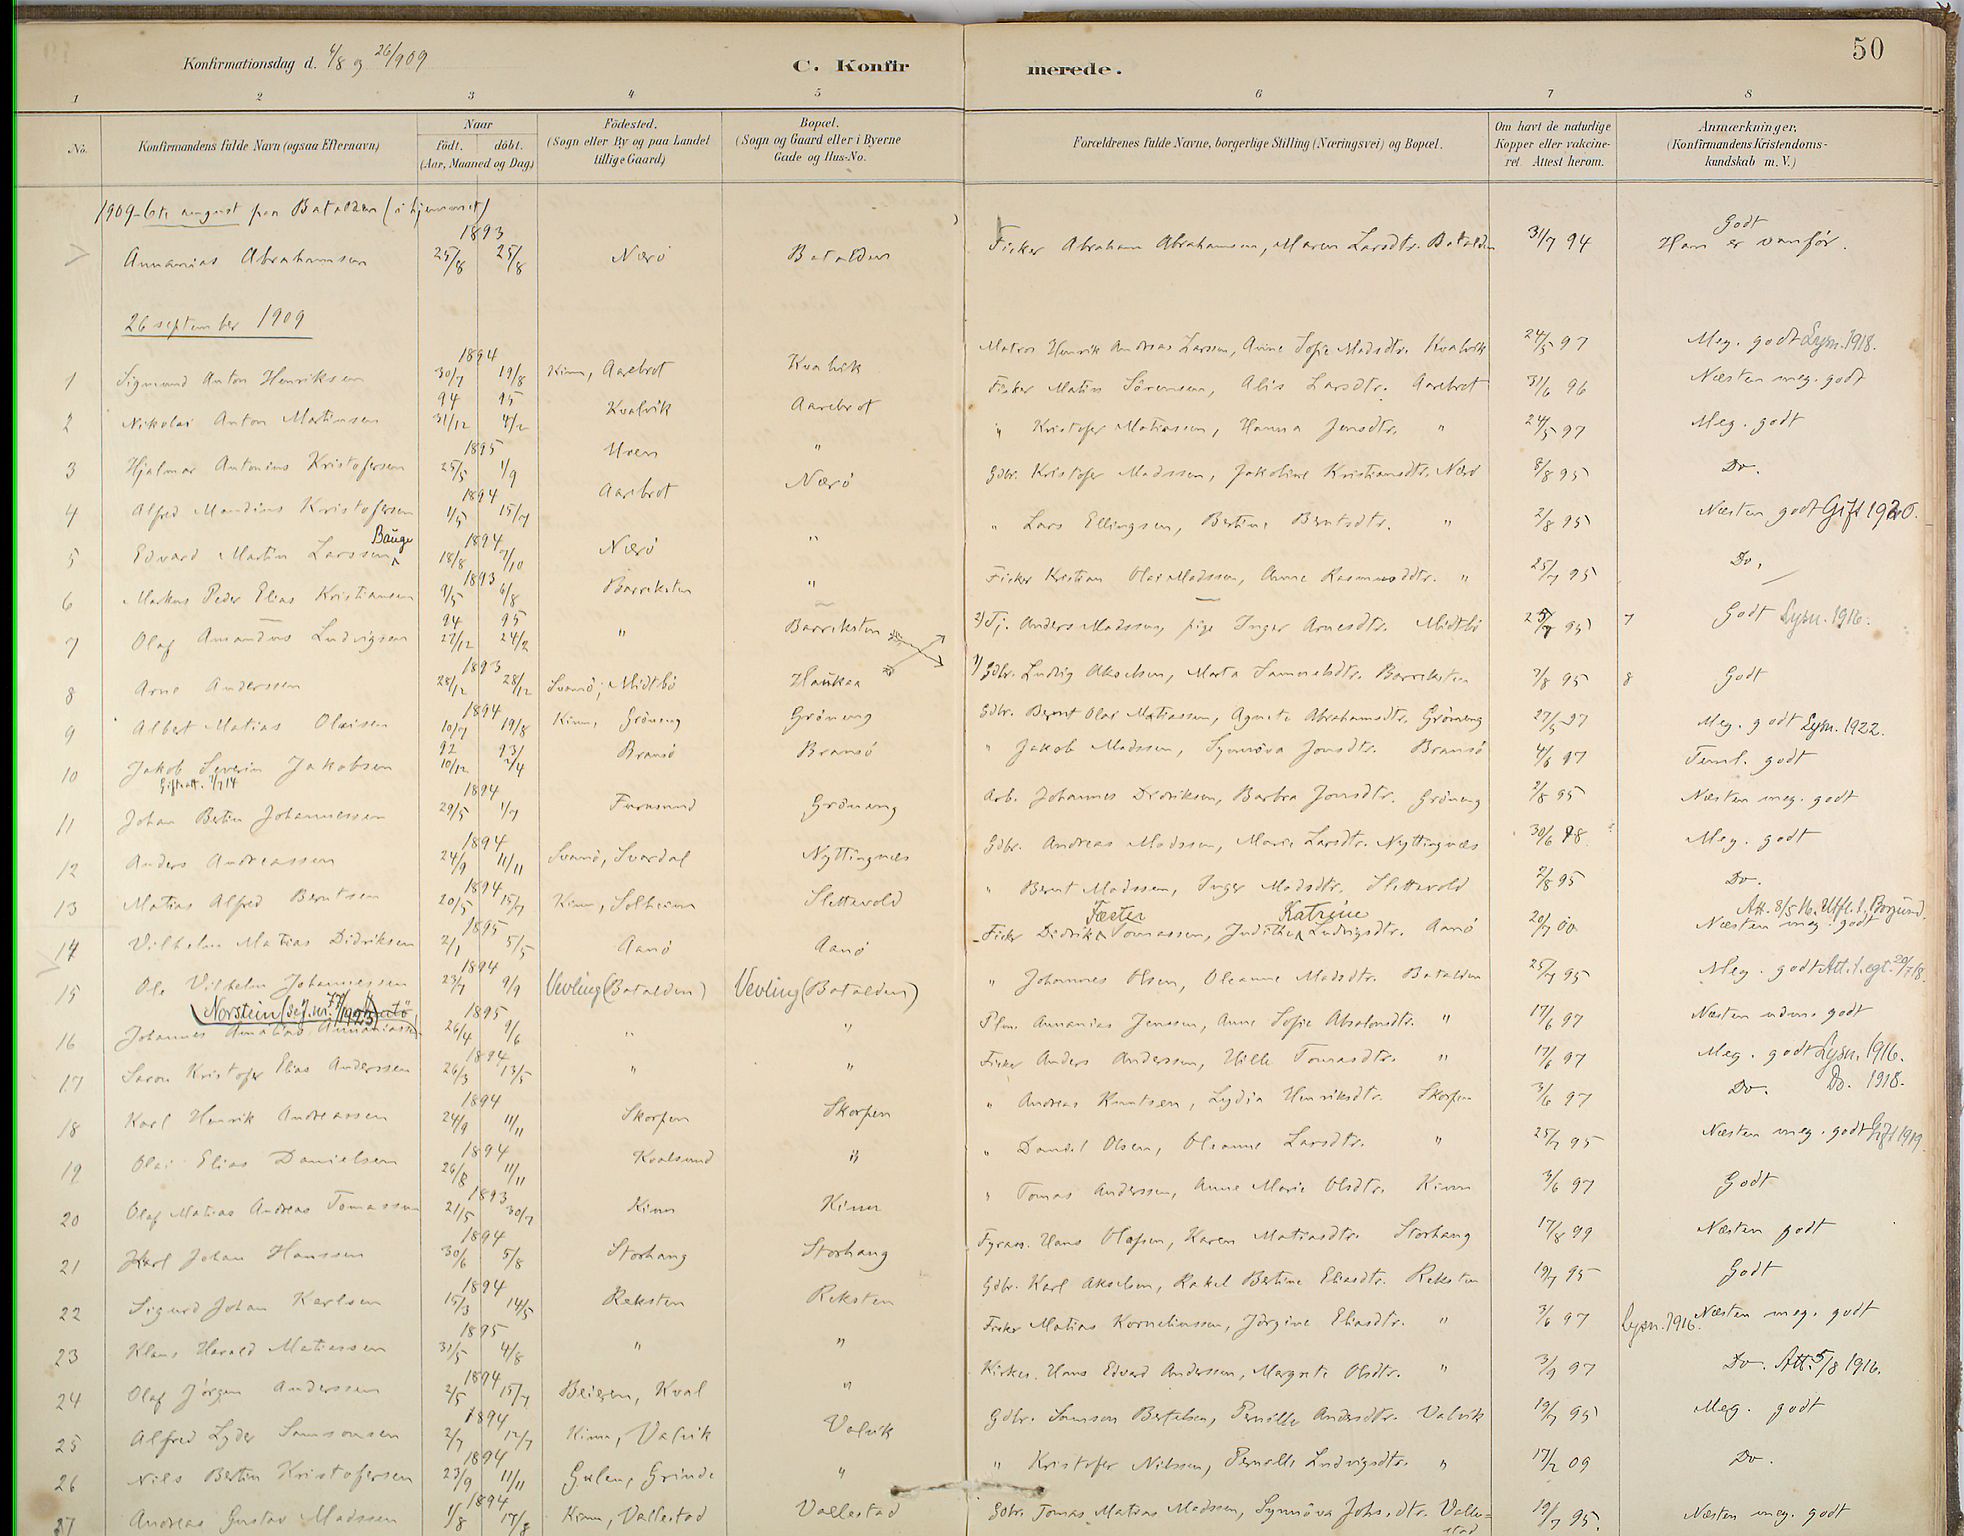 50
Konfirmationsdag d. 6/8 og 26/9 09 C. Konfirmerede.
1 2 3 4 5 6 7 8
No. Konfirmandens fulde Navn (ogsaa Efternavn) Naar Födested. (Sogn eller By og paa Landet tillige Gaard) Bopæl. (Sogn og Gaard eller i Byerne Gade og Hus-No. Forældrenes fulde Navne, borgerlige Stilling (Næringsvei) og Bopæl. Om havt de naturlige Kopper eller vakcineret. Attest herom. Anmærkninger, (Konfirmandens Kristendomskundskab m. V.)
födt. döbt.
(Aar, Maaned og Dag)
1909 6te august paa Batalden (i hjemmet)
1893
Annanias Abrahamsen 25/8 25/8 Nærö Batalden Fisker Abraham Abrahamsen, Maren Larsdtr. Batalden 31/7 94 Godt Han er vanför.
26 september 1909
1894
1 Sigmund Anton Henriksen 30/7 19/8 Kinn, Aarebrot Kvalvik Matros Henrik Andreas Larssen, Anne Sofie Madsdtr. Kvalvik 24/5 97 Meg. godt Lysn. 1918.
94 95
2 Nikolai Anton Martinsen 31/12 4/2 Kvalvik Aarebrot Fisker Matias Sörensen, Alis Larsdtr. Aarebrot 31/6 96 Næsten meg. godt
1895
3 Hjalmar Antonius Kristofersen 25/5 1/9 Uren " " Kristofer Matiassen, Hanna Jonsdtr. " 24/5 97 Meg. godt
1894
4 Alfred Mandius Kristofersen 1/5 15/7 Aarebrot Nærö Gdbr. Kristofer Madssen, Jakobine Kristiansdtr. Nærö 8/8 95 Do.
Bauge 1894
5 Edvard Martin Larssen 18/8 7/10 Nærö " " Lars Ellingsen, Bertine Berntsdtr. " 2/8 95 Næsten godt Gift 1920.
1893
6 Markus Peder Elias Kristiansen 9/5 6/8 Barreksten " Fisker Kristian Olai Madssen, Anne Rasmusddtr. " 25/7 95 Do.
94 95
7 Olaf Amandus Ludvigsen 27/12 24/2 " Barreksten 2) Tj. Anders Madssen, pige Inger Arnesdtr. Midtbö 25/7 95 7 Godt Lysn. 1916.
1893
8 Arne Anderssen 28/12 28/12 Svanö, Midtbö Haukaa 1) Gdbr. Ludvig Akselsen, Marta Samuelsdtr. Barreksten 2/8 95 8 Godt
1894
9 Albert Matias Olaisen 10/7 19/8 Kinn, Gröneng Gröneng Gdbr. Bernt Olai Matiassen, Agnete Abrahamsdtr. Gröneng 27/5 97 Meg. godt Lysn. 1922.
92 93
10 Jakob Severin Jakobsen 10/12 2/4 Bransö Bransö " Jakob Madssen, Synnöva Jonsdtr. Bransö 4/6 97 Teml. godt
Gifteatt. 4/7 14
1894
11 Johan Bertin Johannessen 29/5 1/7 Furusund Gröneng Arb. Johannes Didriksen, Barbra Jonsdtr. Gröneng 2/8 95 Næsten meg. godt
1894
12 Anders Andreassen 24/9 11/11 Svanö, Svardal Nyttingnæs Gdbr. Andreas Madssen, Marie Larsdtr. Nyttingnæs 30/6 98 Meg. godt
1894
13 Matias Alfred Berntsen 20/5 15/7 Kinn, Solheim Slettevold " Bernt Madssen, Inger Madsdtr. Slettevold 2/8 95 Do.
1895 Fæster Katrine Att. 8/5 16. Utfl. t. Borgund.
14 Vilhelm Matias Didriksen 2/1 5/5 Aanö Aanö Fisker Didrik Tomassen, Judithe Ludvigsdtr. Aanö 20/7 00 Næsten meg. godt
1894
15 Ole Vilhelm Johannessen 23/7 9/9 Vevling (Batalden) Vevling (Batalden) " Johannes Olsen, Oleanne Madsdtr. Batalden 25/7 95 Meg. godt Att. t. egt. 29/7 18.
Norstein 1895
16 Johannes Amatius Annaniassen 26/4 9/6 " " Plm. Annanias Jenssen, Anne Sofie Absalonsdtr. " 17/6 97 Næsten udm. godt
1894
17 Saron Kristofer Elias Anderssen 26/3 13/5 " " Fisker Anders Anderssen, Hille Tomasdtr. " 17/6 97 Meg. godt Lysn. 1916.
1894
18 Karl Henrik Andreassen 24/9 11/11 Skorpen Skorpen " Andreas Knutsen, Lydia Henriksdtr. Skorpen 3/6 97 Do. Do. 1918.
1894
19 Olai Elias Danielsen 26/8 11/11 Kvalsund " " Daniel Olsen, Oleanne Larsdtr. " 25/7 95 Næsten meg. godt Gift 1919.
1893
20 Olaf Matias Andreas Tomassen 21/5 30/7 Kinn Kinn " Tomas Anderssen, Anne Marie Olsdtr. Kinn 3/6 97 Godt
1894
21 Karl Johan Hanssen 30/6 5/8 Storhaug Storhaug Fyrass. Hans Olafsen, Karen Matiasdtr. Storhaug 17/8 99 Næsten godt
1894
22 Sigurd Johan Karlsen 15/3 14/5 Reksten Reksten Gdbr. Karl Akselsen, Rakel Bertine Eliasdtr. Reksten 19/7 95 Godt
1895
23 Klaus Harald Matiassen 31/5 4/8 " " Fisker Matias Korneliussen, Jörgine Eliasdtr. " 3/6 97 Lysn. 1916. Næsten meg. godt
1894
24 Olaf Jörgen Anderssen 2/5 15/7 Beieren, Kval " Kirkes. Hans Edvard Anderssen, Margrete Olsdtr. " 3/9 97 Do. Att. 5/8 1916.
1894
25 Alfred Lyder Samsonsen 2/7 12/7 Kinn, Valvik Valvik Gdbr. Samson Bertelsen, Pernille Andersdtr. Valvik 19/7 95 Meg. godt
1894
26 Nils Bertin Kristofersen 23/9 11/11 Gulen, Grinde " " Kristofer Nilssen, Pernelle Ludvigsdtr. " 17/2 09 Do.
1894
27 Andreas Gustav Madssen 1/8 17/8 Kinn, Vallestad Vallestad Gdbr. Tomas Matias Madssen, Synnöva Johs.dtr. Vallestad 19/7 95. Næsten meg. godt